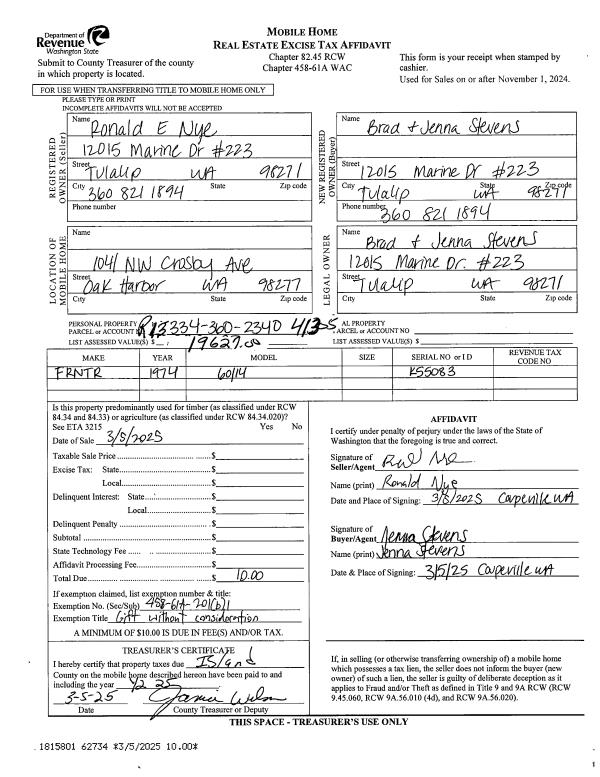 Department of
Revenue
Washington State
Submit to County Treasurer of the county
in which property is located.
MOBILE HOME
REAL ESTATE EXCISE TAX AFFIDAVIT
Chapter 82.45 RCW
Chapter 458-61A WAC
This form is your receipt when stamped by
cashier.
Used for Sales on or after November 1, 2024.
FOR USE WHEN TRANSFERRING TITLE TO MOBILE HOME ONLY
PLEASE TYPE OR PRINT
INCOMPLETE AFFIDAVITS WILL NOT BE ACCEPTED
REGISTERED
OWNER (Seller)
Name
Ronald E Nye
12015 Marine Dr #223
Street
Tulalip WA 98271
City State Zip code
360 821 1894
Phone number
NEW REGISTERED
OWNER (Buyer)
Name
Brad & Jenna Stevens
Street
12015 Marine Dr #223
City State Zip code
Tulalip WA 98271
Phone number
360 821 1894
LOCATION OF
MOBILE HOME
Name
1041 NW Crosby Ave
Street
Oak Harbor WA 98277
City State Zip code
LEGAL OWNER
Name
Brad & Jenna Stevens
12015 Marine Dr. #223
Street
Tulalip WA 98271
City State Zip code
PERSONAL PROPERTY
PARCEL or ACCOUNT R13334-360-2340 4135
LIST ASSESSED VALUE(S) $ 19627.00
AL PROPERTY
PARCEL or ACCOUNT NO
LIST ASSESSED VALUE(S) $
MAKE YEAR MODEL SIZE SERIAL NO or I D REVENUE TAX CODE NO
FRNTR 1974 60/14 K55083
Is this property predominantly used for timber (as classified under RCW
84.34 and 84.33) or agriculture (as classified under RCW 84.34.020)?
See ETA 3215 Yes No
Date of Sale 3/5/2025
Taxable Sale Price $
Excise Tax: State $
Local $
Delinquent Interest: State $
Local $
Delinquent Penalty $
Subtotal $
State Technology Fee $
Affidavit Processing Fee $
Total Due $ 10.00
If exemption claimed, list exemption number & title:
Exemption No. (Sec/Sub) 458-61A-201(b)1
Exemption Title Gift without consideration
A MINIMUM OF $10.00 IS DUE IN FEE(S) AND/OR TAX.
AFFIDAVIT
I certify under penalty of perjury under the laws of the State of
Washington that the foregoing is true and correct.
Signature of
Seller/Agent
Name (print) Ronald Nye
Date and Place of Signing: 3/5/2025 Coupeville WA
Signature of
Buyer/Agent Jenna Stevens
Name (print) Jenna Stevens
Date & Place of Signing: 3/5/25 Coupeville WA
TREASURER'S CERTIFICATE
I hereby certify that property taxes due Island
County on the mobile home described hereon have been paid to and
including the year 1/2 25
3-5-25
Date County Treasurer or Deputy
If, in selling (or otherwise transferring ownership of) a mobile home
which possesses a tax lien, the seller does not inform the buyer (new
owner) of such a lien, the seller is guilty of deliberate deception as it
applies to Fraud and/or Theft as defined in Title 9 and 9A RCW (RCW
9.45.060, RCW 9A.56.010 (4d), and RCW 9A.56.020).
THIS SPACE - TREASURER'S USE ONLY
1815801 62734 *3/5/2025 10.00*
1